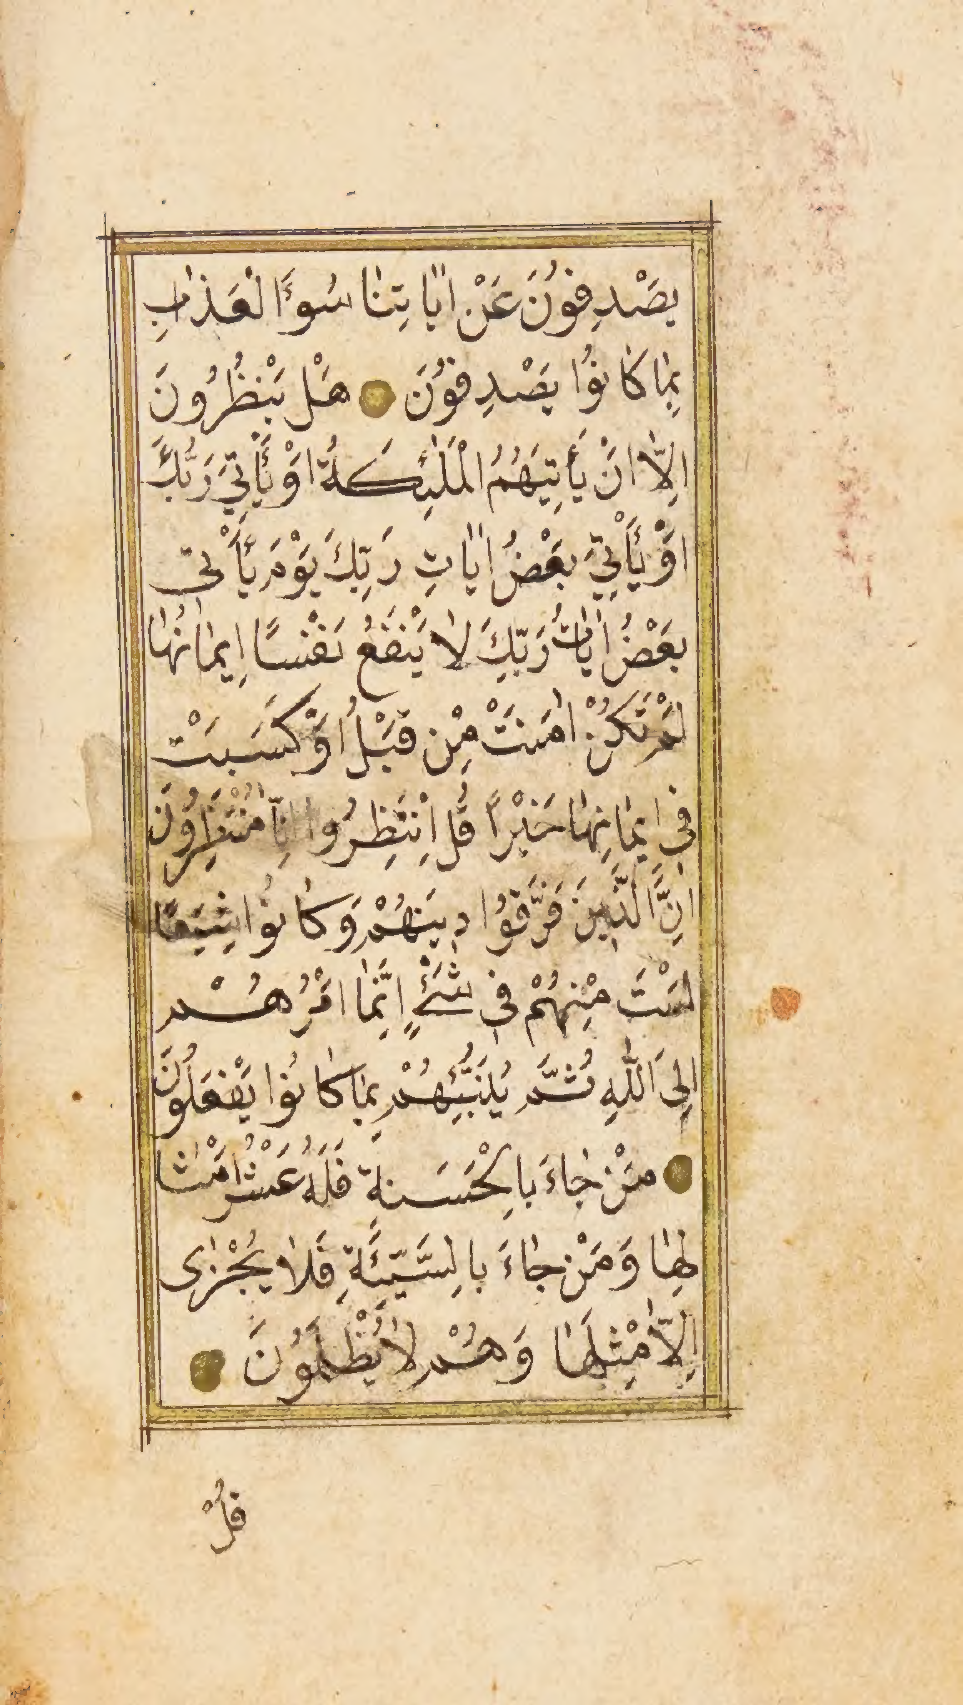 يَصْدِفُونَ عَنْ اٰيَاتِنَا سُوءَ الْعَذَابِ
بِمَا كَانُوا يَصْدِفُونَ هَلْ يَنْظُرُونَ
اِلَّا اَنْ يَأْتِيَهُمُ الْمَلٰئِكَةُ اَوْ يَأْتِيَ رَبُّكَ
اَوْ يَأْتِيَ بَعْضُ اٰيَاتِ رَبِّكَ يَوْمَ يَأْتِى
بَعْضُ اٰيَاتِ رَبِّكَ لَا يَنْفَعُ نَفْسًا اِيمَانُهَا
لَمْ تَكُنْ اٰمَنَتْ مِنْ قَبْلُ اَوْ كَسَبَتْ
فِى اِيمَانِهَا خَيْرًا قُلِ انْتَظِرُوا اِنَّا مُنْتَظِرُونَ
اِنَّ الَّذِينَ فَرَّقُوا دِينَهُمْ وَكَانُوا شِيَعًا
لَسْتَ مِنْهُمْ فِى شَىْءٍ اِنَّمَا اَمْرُهُمْ
اِلَى اللّٰهِ ثُمَّ يُنَبِّئُهُمْ بِمَا كَانُوا يَفْعَلُونَ
مَنْ جَاءَ بِالْحَسَنَةِ فَلَهُ عَشْرُ اَمْثَا
لِهَا وَمَنْ جَاءَ بِالسَّيِّئَةِ فَلَا يُجْزٰى
اِلَّا مِثْلَهَا وَهُمْ لَا يُظْلَمُونَ
قُلْ